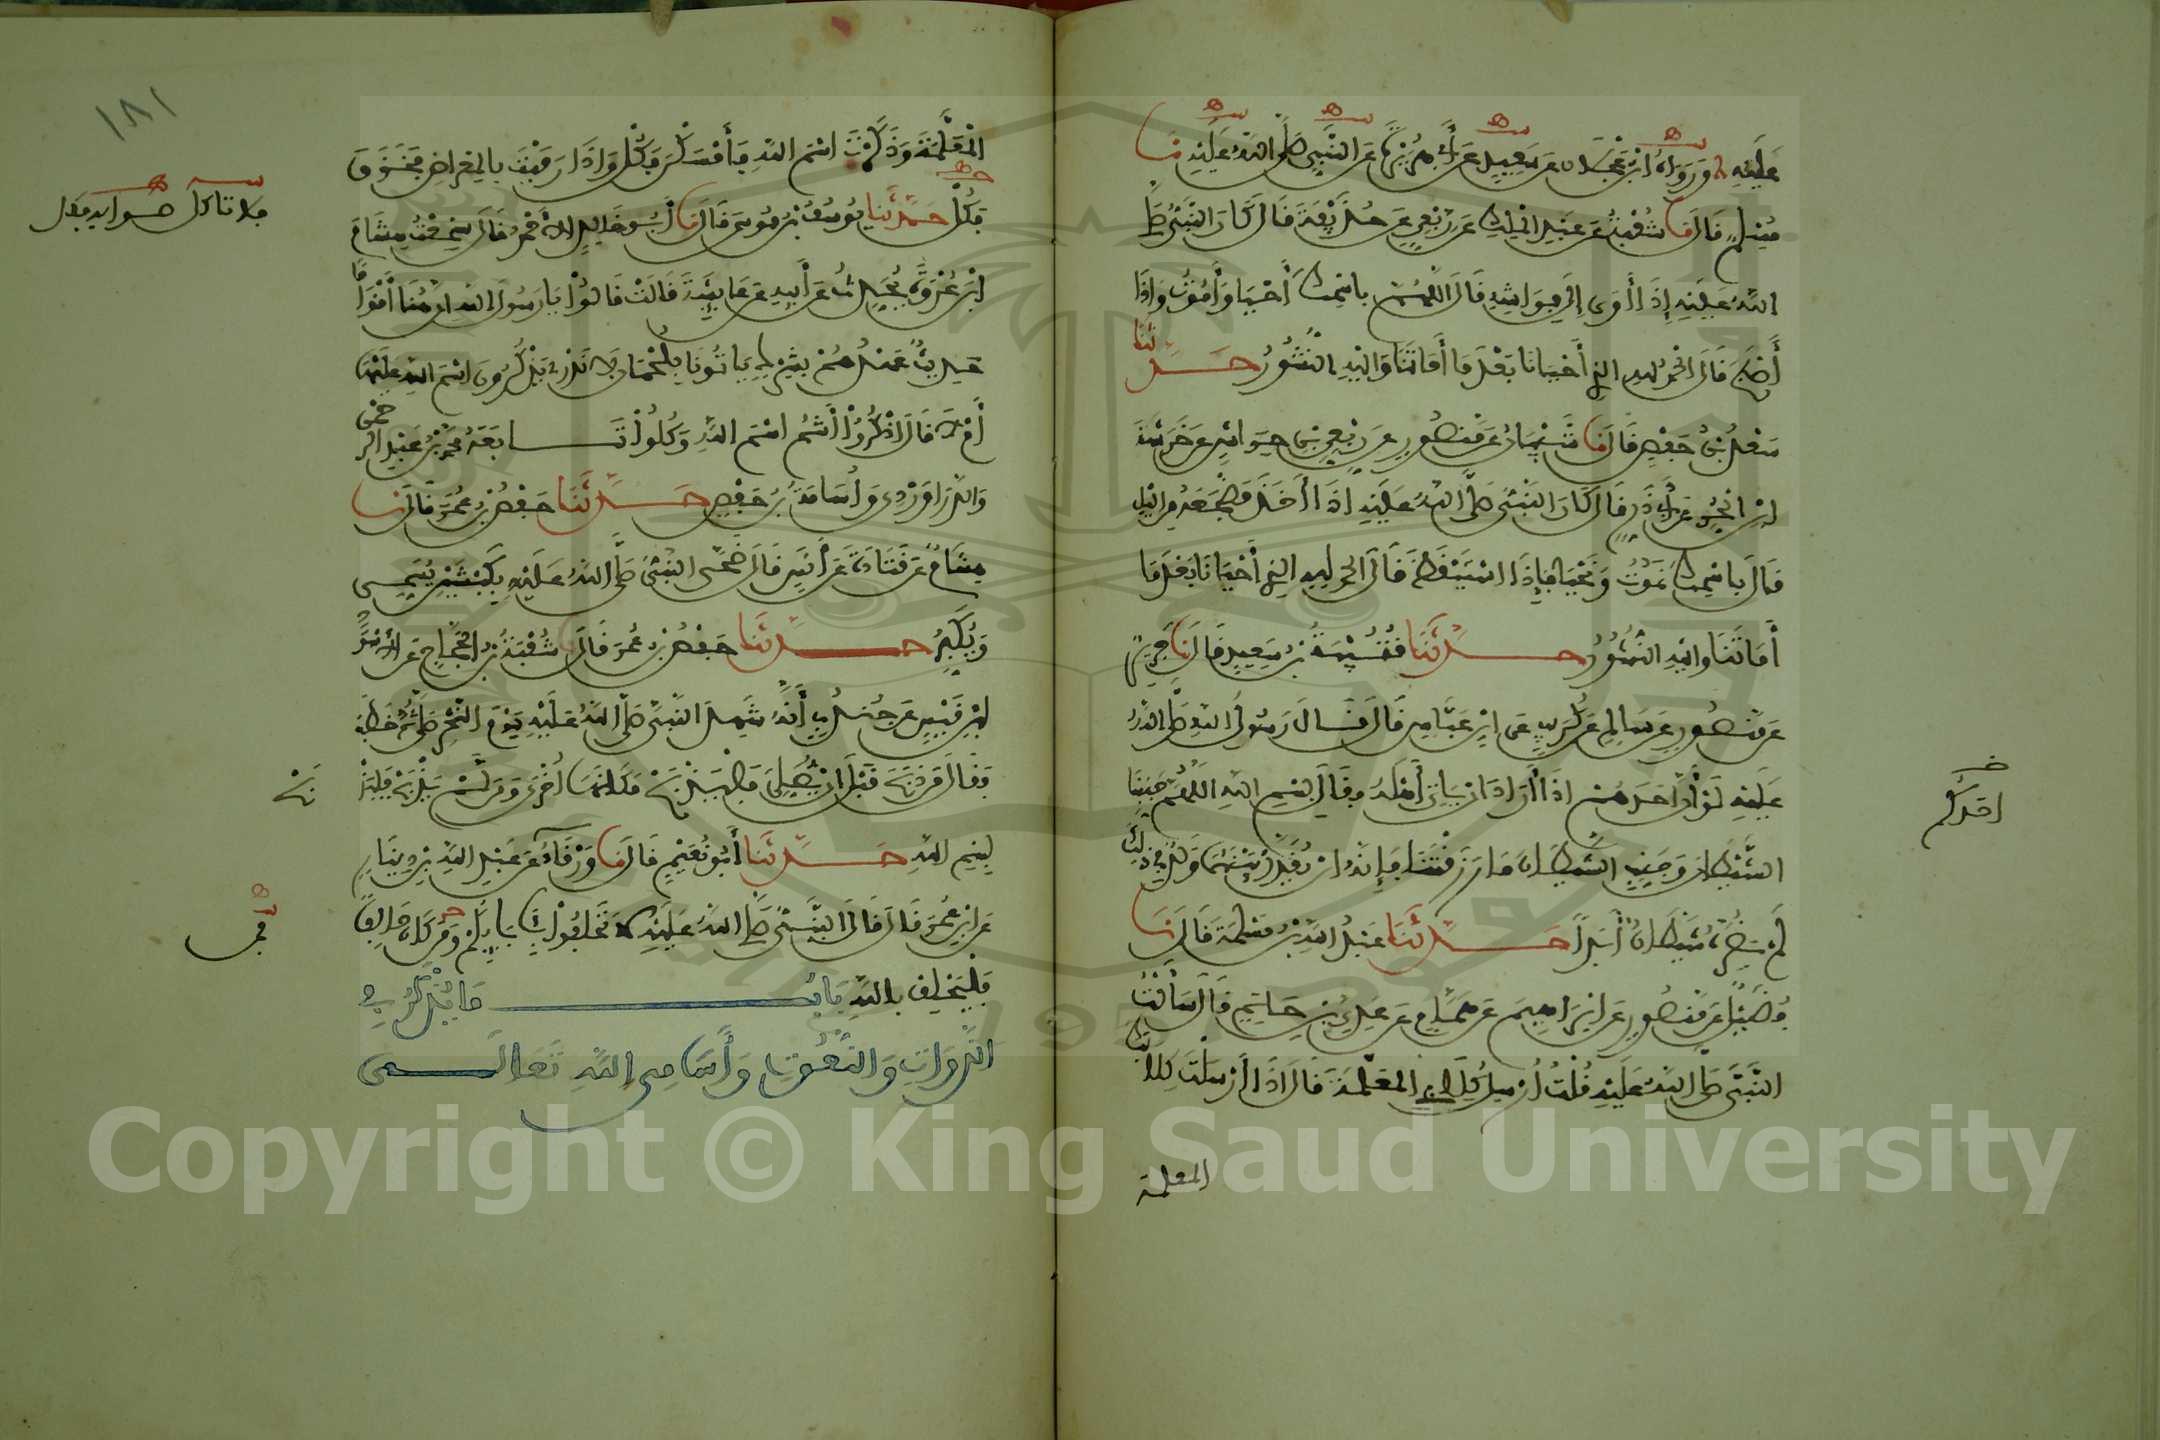 عليه ورواه ابن عجلان عن سعيد عن أبي هريرة عن النبي صلى الله عليه نا
مسلم قال نا شعبة عن عبد الملك عن ربعي عن حذيفة قال كان النبي صلى
الله عليه إذا أوى إلى فراشه قال اللهم باسمك أحيا وأموت وإذا
أصبح قال الحمد لله الذي أحيانا بعدما أماتنا وإليه النشور حدثنا
سعد بن حفص قال نا شيبان عن منصور عن ربعي بن حراش عن خرشة
بن الحر عن أبي ذر قال كان النبي صلى الله عليه إذا أخذ مضجعه من الليل
قال باسمك نموت ونحيا فإذا استيقظ قال الحمد لله الذي أحيانا بعدما
أماتنا وإليه النشور حدثنا قتيبة بن سعيد قال نا جرير
عن منصور عن سالم عن كريب عن ابن عباس قال قال رسول الله صلى الله
عليه لو أن أحدهم إذا أراد أن يأتي أهله فقال بسم الله اللهم جنبنا
الشيطان وجنب الشيطان ما رزقتنا فإنه إن يقدر بينهما ولد في ذلك
لم يضره شيطان أبدا حدثنا عبد الله بن مسلمة قال نا
فضيل عن منصور عن إبراهيم عن همام عن عدي بن حاتم قال سألت
النبي صلى الله عليه قلت أرسل كلابي المعلمة قال إذا أرسلت كلابك
المعلمة
احدكم
١٨١
المعلمة وذكرت اسم الله فأمسكن فكل وإذا رميت بالمعراض فخزق
فكل حدثنا يوسف بن موسى قال نا أبو خالد الأحمر قال سمعت هشام
بن عروة يحدث عن أبيه عن عايشة قالت قالوا يا رسول الله إن هنا أقواما
حديث عهدهم بشرك ياتونا بلحمان لا ندري يذكرون اسم الله عليها
أم لا قال اذكروا أنتم اسم الله وكلوا تابعه محمد بن عبد الرحمن
والدراوردي وأسامة بن حفص حدثنا حفص بن عمر قال نا
هشام عن قتادة عن أنس قال ضحى النبي صلى الله عليه بكبشين يسمي
ويكبر حدثنا حفص بن عمر قال نا شعبة بن الحجاج عن الأسود
بن قيس عن جندب أنه شهد النبي صلى الله عليه يوم النحر صلى ثم خطب
وقال من ذبح قبل أن يصلي فليذبح مكانها أخرى ومن لم يذبح فليذبح
بسم الله حدثنا أبو نعيم قال نا ورقاء عن عبد الله بن دينار
عن ابن عمر قال قال النبي صلى الله عليه لا تحلفوا بآبائكم ومن كان حالفا
فليحلف بالله باب ما يذكر في
الذوات والنعوت وأسامي الله تعالى
فلا تاكل